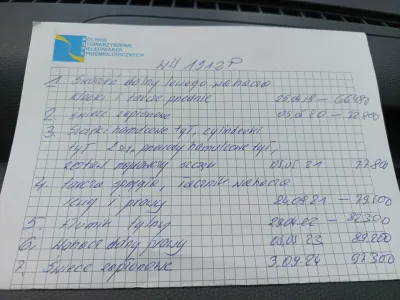 POLSKIE
TOWARZYSZENIE
PIELĘGNIAREK
EPIDEMIOLOGICZNYCH
1. Sworzeń dolny lewego wahacza
klocki i tarcze przednie 25.04.18 – 66480
2. Świece zapłonowe 05.02.20 – 72.800
3. Szczęki hamulcowe tył, cylinderki
tył 2 szt, przewody hamulcowe tył,
zestaw naprawczy szczęk 05.05.21 77.800
4. tarcza sprzęgła, łącznik wahacza
lewy i prawy 24.08.21 – 79.500
5. tłumik tylny 29.04.22 – 82300
6. Wahacz dolny prawy 05.05.23 89.200
7. Świece zapłonowe 3.09.24 97300